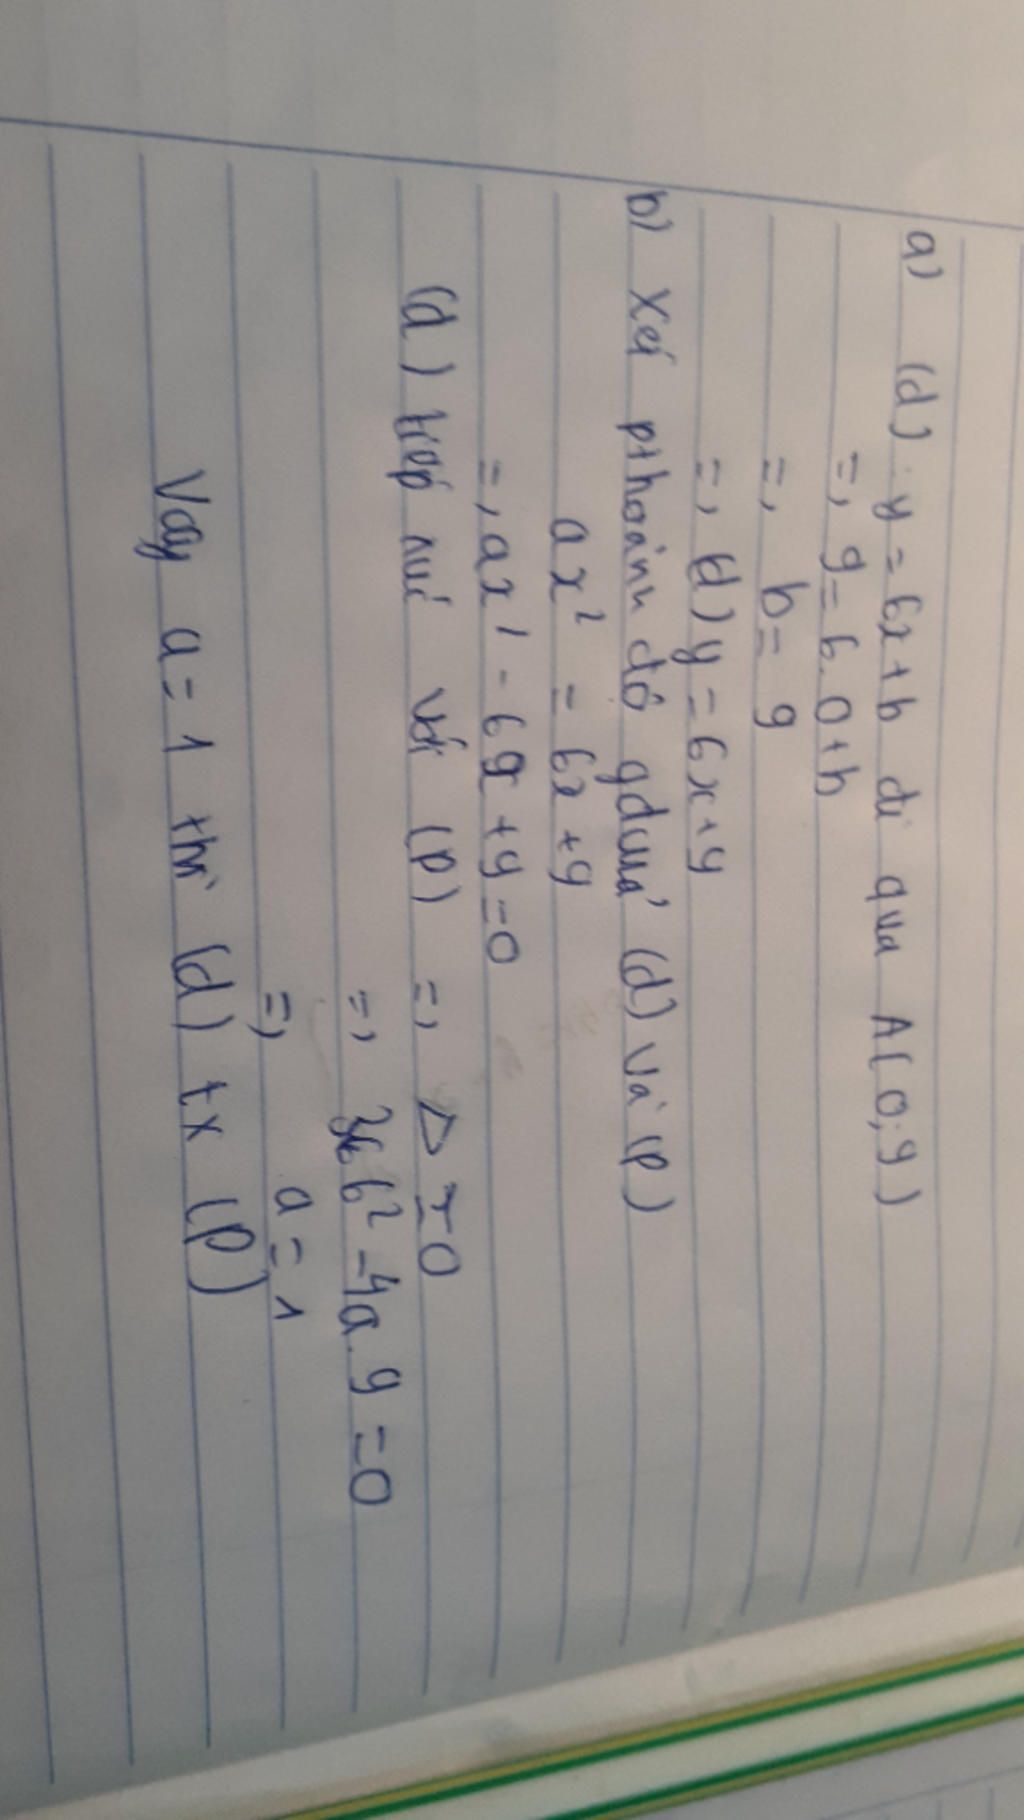 a) (d): y = 6x+b đi qua A(0;9)
=, 9=6.0+b
=, b= 9
=, (d) y = 6x+9
b) Xét pthoành độ gđcuả (d) và (P)
ax² = 6x +9
=, ax² - 6x +9 =0
(d) tiếp xúc với (P) =, Δ = 0
=, 6² -4a.9 =0
=, a = 1
Vậy a = 1 thì (d) tx (P)